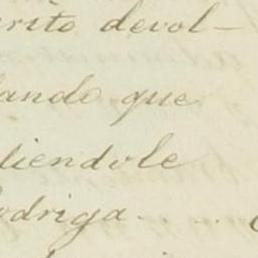 rito devol-
ando que
diendole
odriga